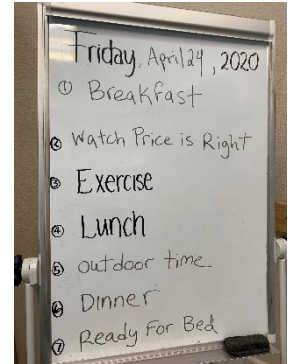 Friday, April 24, 2020
① Breakfast
② Watch Price is Right
③ Exercise
④ Lunch
⑤ outdoor time
⑥ Dinner
⑦ Ready For Bed